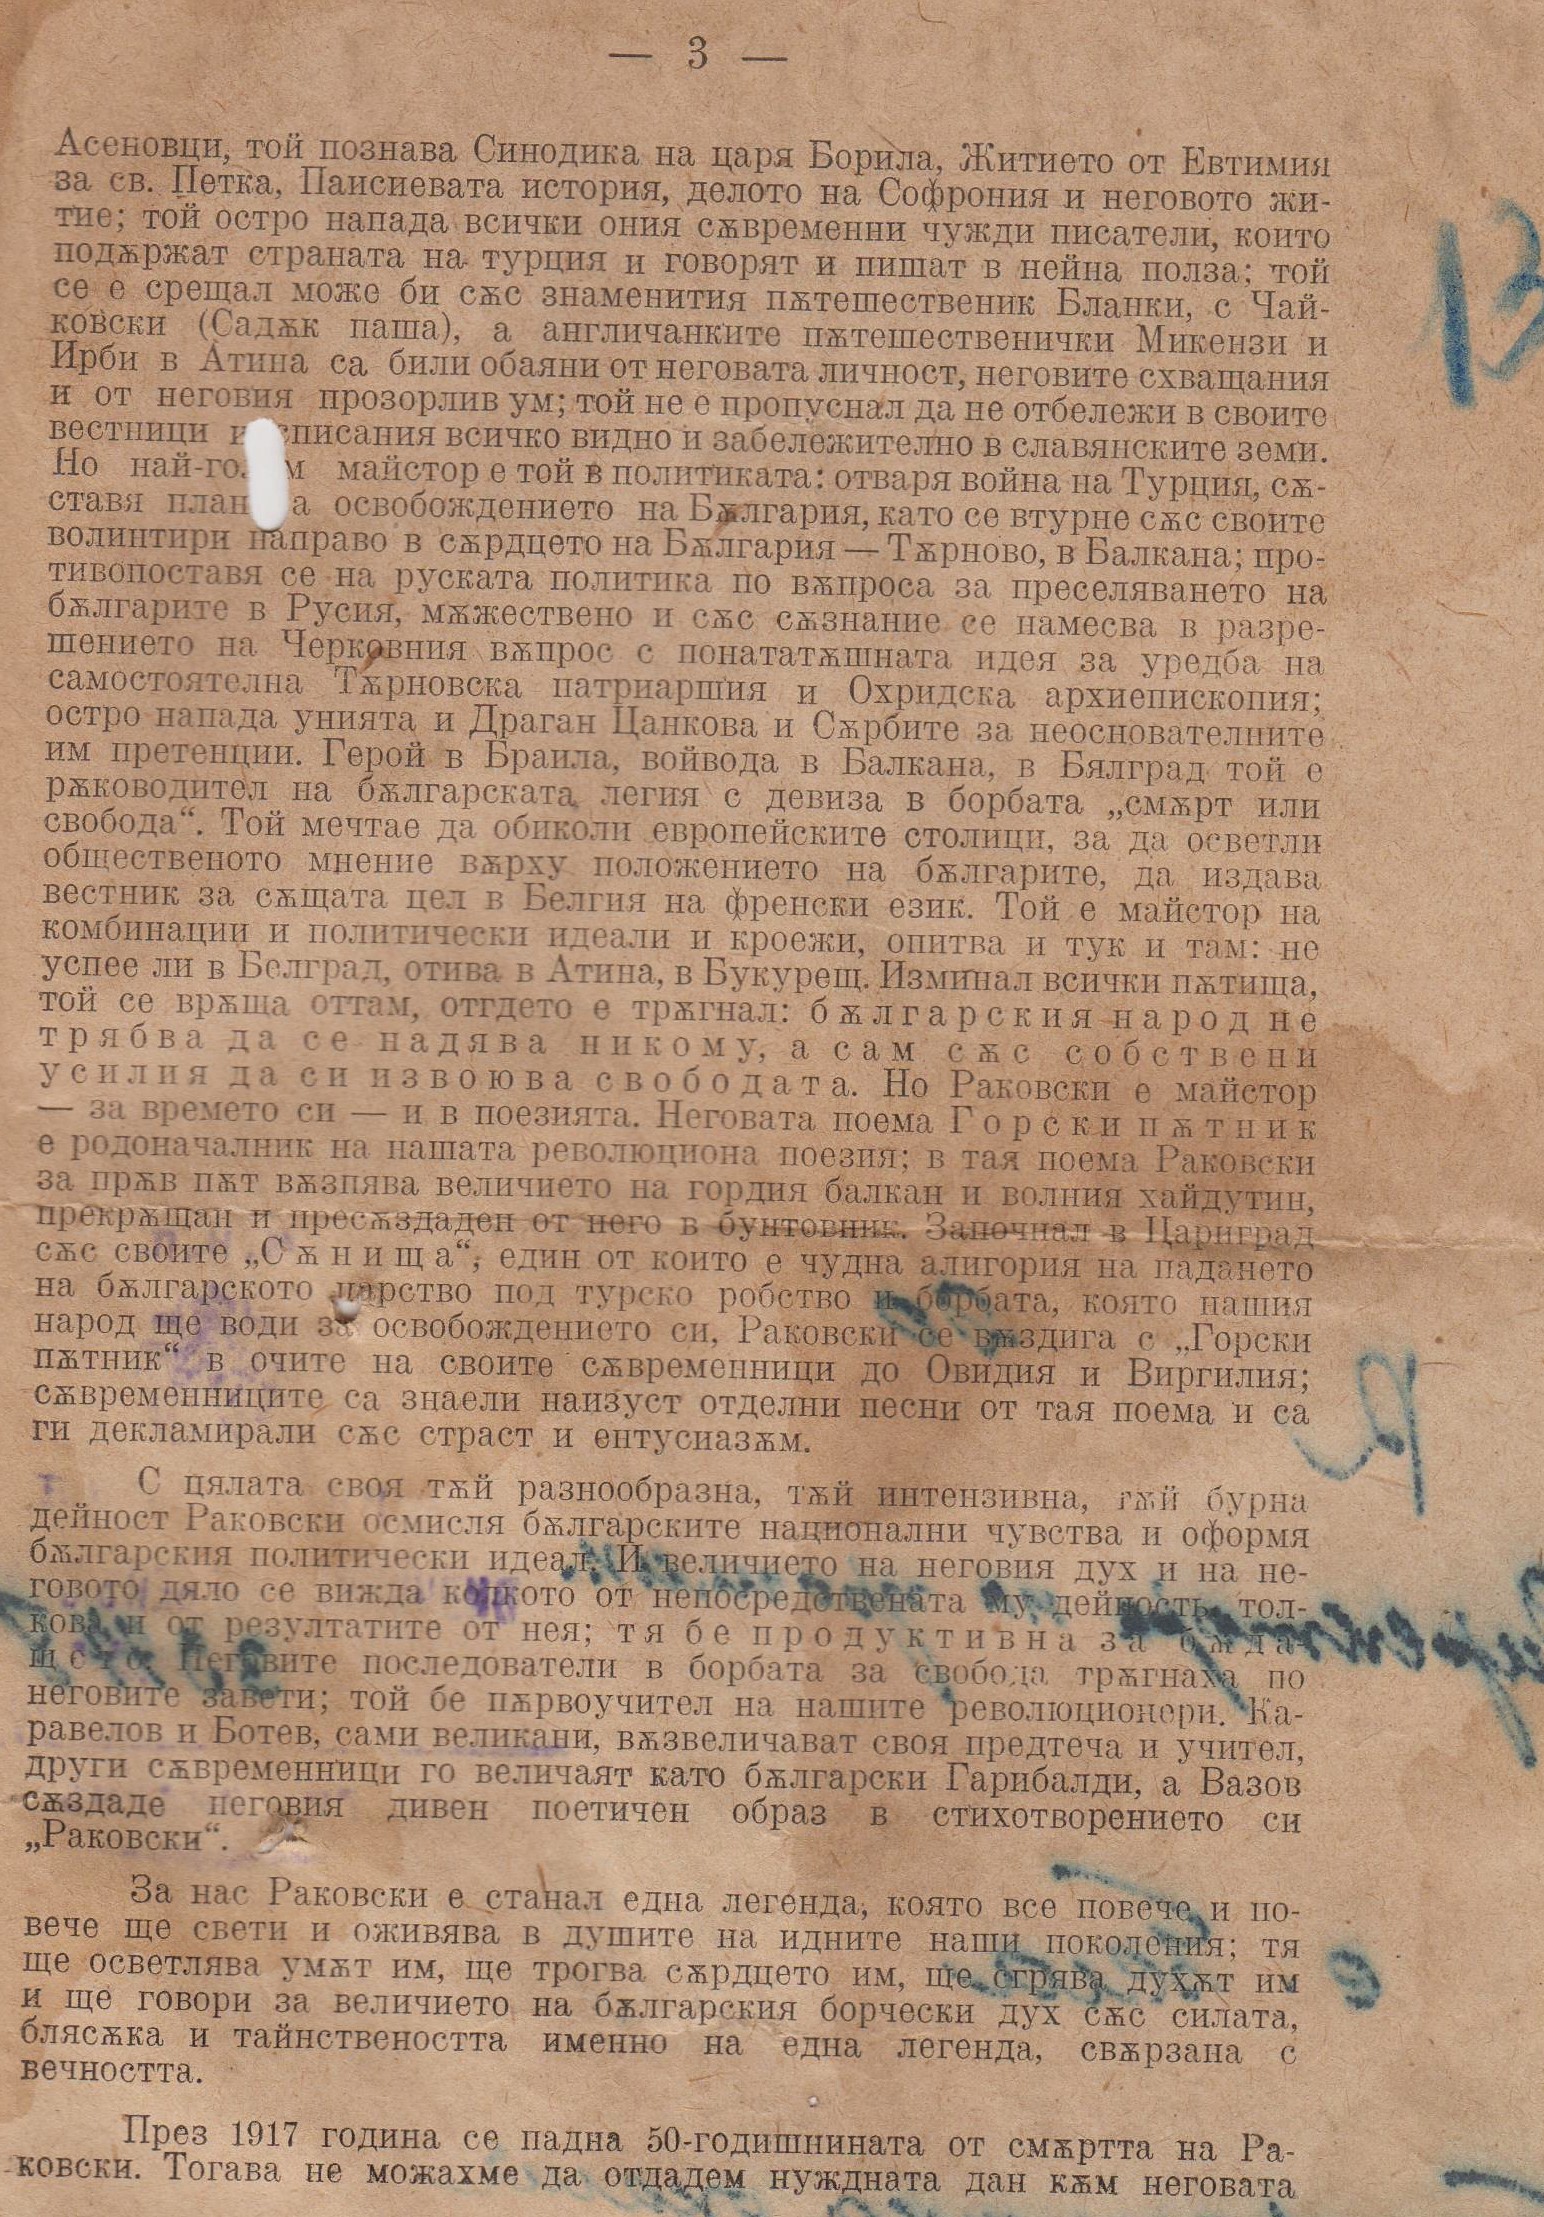 — 3 —
Асеновци, той познава Синодика на царя Борила, Житието от Евтимия
за св. Петка, Паисиевата история, делото на Софрония и неговото жи-
тие; той остро напада всички ония сѫвременни чужди писатели, които
подѫржат страната на турция и говорят и пишат в нейна полза; той
се е срещал може би сѫс знаменития пѫтешественик Бланки, с Чай-
ковски (Садѫк паша), а англичанките пѫтешественички Микензи и
Ирби в Атина са били обаяни от неговата личност, неговите схващания
и от неговия прозорлив ум; той не е пропуснал да не отбележи в своите
вестници и списания всичко видно и забележително в славянските земи.
Но най-голям майстор е той в политиката: отваря война на Турция, сѫ-
ставя план а освобождението на Бѫлгария, като се втурне сѫс своите
волинтири направо в сѫрдцето на Бѫлгария — Тѫрново, в Балкана; про-
тивопоставя се на руската политика по вѫпроса за преселяването на
бѫлгарите в Русия, мѫжествено и сѫс сѫзнание се намесва в разре-
шението на Черковния вѫпрос с понататѫшната идея за уредба на
самостоятелна Тѫрновска патриаршия и Охридска архиепископия;
остро напада унията и Драган Цанкова и Сѫрбите за неоснователните
им претенции. Герой в Браила, войвода в Балкана, в Бялград той е
рѫководител на бѫлгарската легия с девиза в борбата „смѫрт или
свобода“. Той мечтае да обиколи европейските столици, за да осветли
общественото мнение вѫрху положението на бѫлгарите, да издава
вестник за сѫщата цел в Белгия на френски език. Той е майстор на
комбинации и политически идеали и кроежи, опитва и тук и там: не
успее ли в Белград, отива в Атина, в Букурещ. Изминал всички пѫтища,
той се врѫща оттам, отгдето е трѫгнал: бѫлгарския народ не
трябва да се надява никому, а сам сѫс собствени
усилия да си извоюва свободата. Но Раковски е майстор
— за времето си — и в поезията. Неговата поема Горски пѫтник
е родоначалник на нашата революциона поезия; в тая поема Раковски
за прѫв пѫт вѫзпява величието на гордия балкан и волния хайдутин,
прекрѫщан и пресѫздаден от него в бунтовник. Започнал в Цариград
сѫс своите „Сѫнища“, един от които е чудна алигория на падането
на бѫлгарското царство под турско робство и борбата, която нашия
народ ще води за освобождението си, Раковски се вѫздига с „Горски
пѫтник“ в очите на своите сѫвременници до Овидия и Виргилия;
сѫвременниците са знаели наизуст отделни песни от тая поема и са
ги декламирали сѫс страст и ентусиазѫм.
С цялата своя тѫй разнообразна, тѫй интензивна, тѫй бурна
дейност Раковски осмисля бѫлгарските национални чувства и оформя
бѫлгарския политически идеал. И величието на неговия дух и на не-
говото дяло се вижда колкото от непосредствената му дейность, тол-
кова и от резултатите от нея; тя бе продуктивна за бѫда-
щето. Неговите последователи в борбата за свобода трѫгнаха по
неговите завети; той бе пѫрвоучител на нашите революционери. Ка-
равелов и Ботев, сами великани, вѫзвеличават своя предтеча и учител,
други сѫвременници го величаят като бѫлгарски Гарибалди, а Вазов
сѫздаде неговия дивен поетичен образ в стихотворението си
„Раковски“.
За нас Раковски е станал една легенда, която все повече и по-
вече ще свети и оживява в душите на идните наши поколения; тя
ще осветлява умѫт им, ще трогва сѫрдцето им, ще сгрява духѫт им
и ще говори за величието на бѫлгарския борчески дух сѫс силата,
блясѫка и тайнствеността именно на една легенда, свѫрзана с
вечността.
През 1917 година се падна 50-годишнината от смѫртта на Ра-
ковски. Тогава не можахме да отдадем нуждната дан кѫм неговата